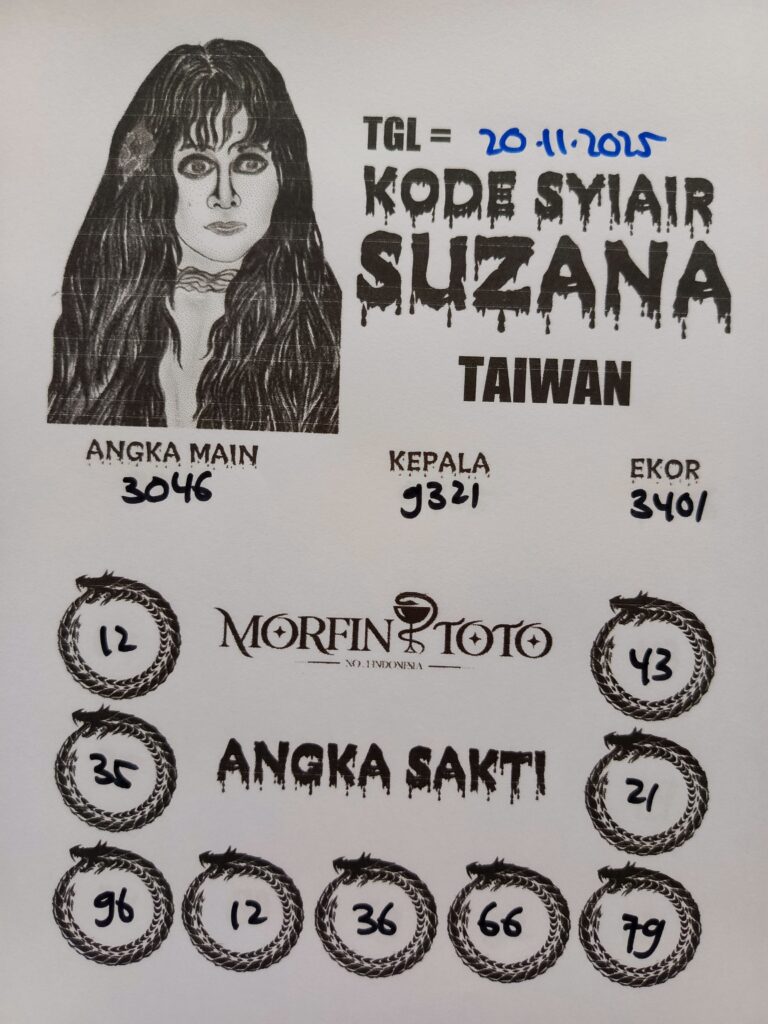 TGL = 20.11.2025
KODE SYIAIR
SUZANA
TAIWAN
ANGKA MAIN KEPALA EKOR
3046 9321 3401
12 MORFIN TOTO 43
NO.1 INDONESIA
35 ANGKA SAKTI 21
96 12 36 66 79